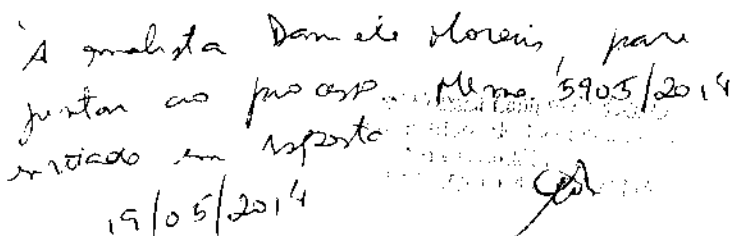 À analista Daniele Morais, para
juntar ao processo. Memo. 5905/2014
enviado em resposta
19/05/2014